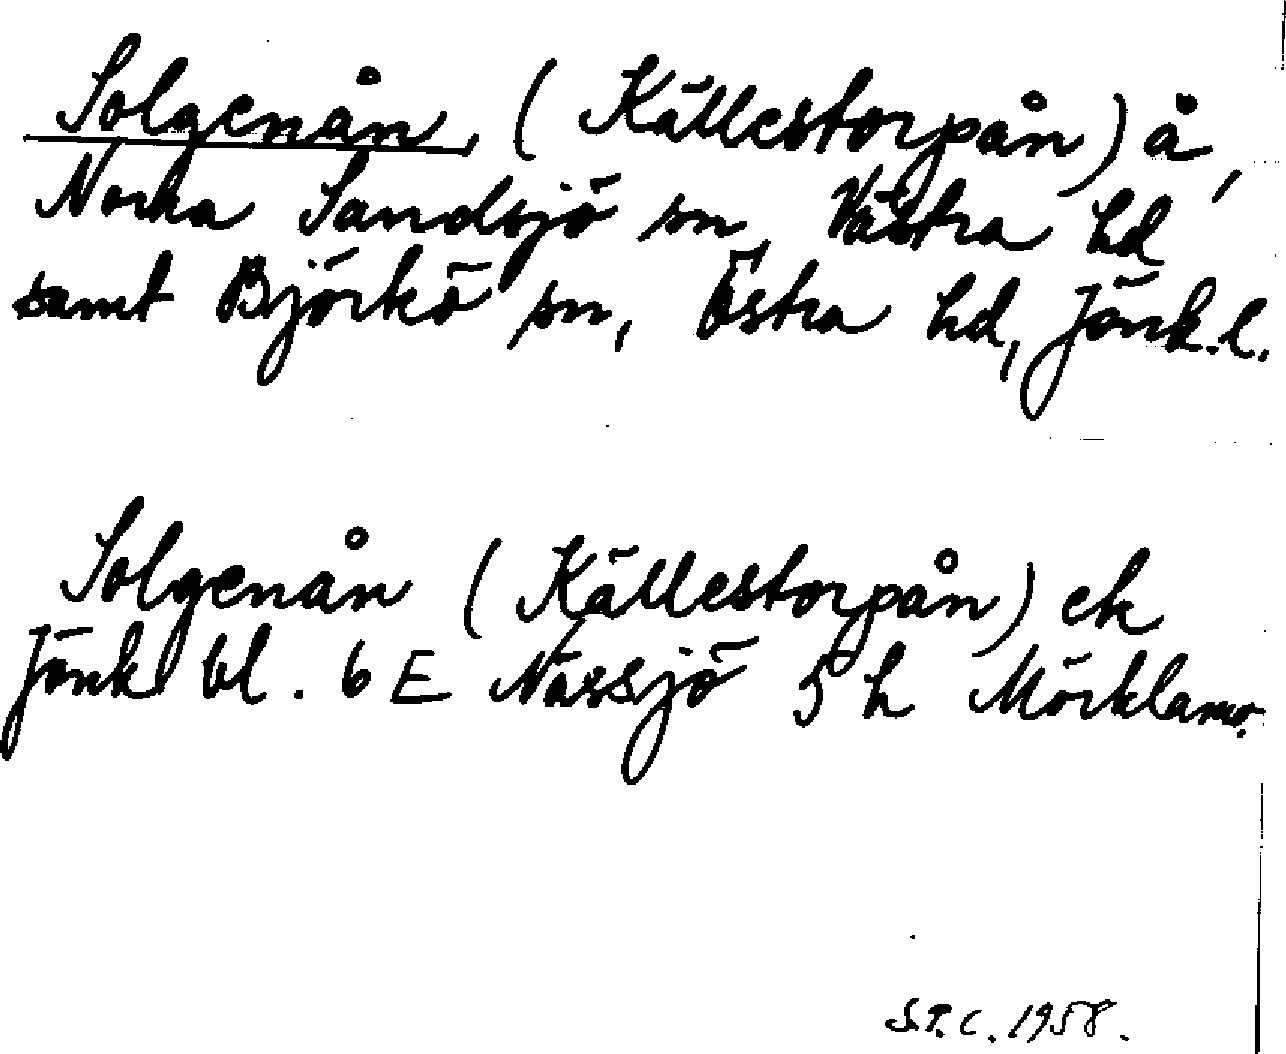 Solgenån, (Källestorpån) å,
Norra Sandsjö sn, Västra hd
samt Björkö sn, Östra hd, Jönk.l.
Solgenån (Källestorpån) ek
Jönk bl. 6 E Nässjö 5 h Mörklamo.
S.T.C. 1958.